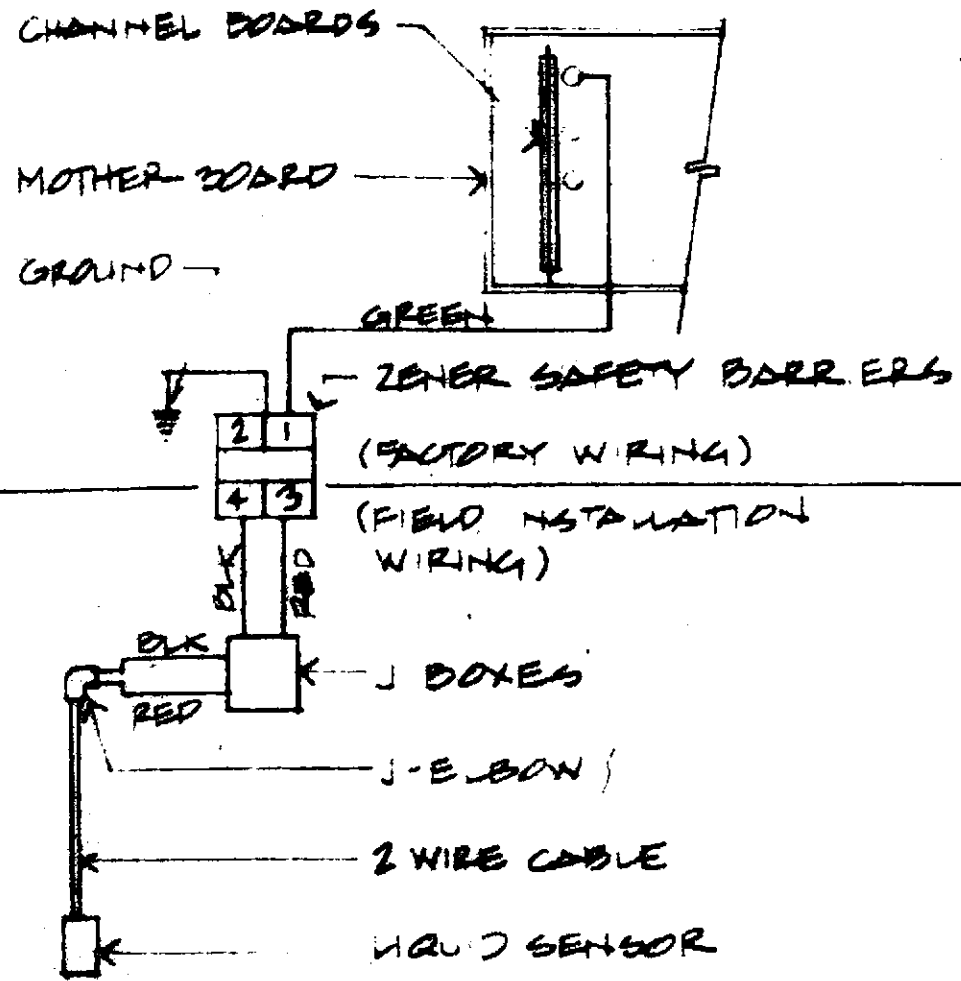 CHANNEL BOARDS
MOTHER BOARD
GROUND
GREEN
ZENER SAFETY BARRIERS
2 1
(FACTORY WIRING)
4 3
(FIELD INSTALLATION
WIRING)
BLK
RED
BLK
J BOXES
RED
J-ELBOW
2 WIRE CABLE
LIQUID SENSOR